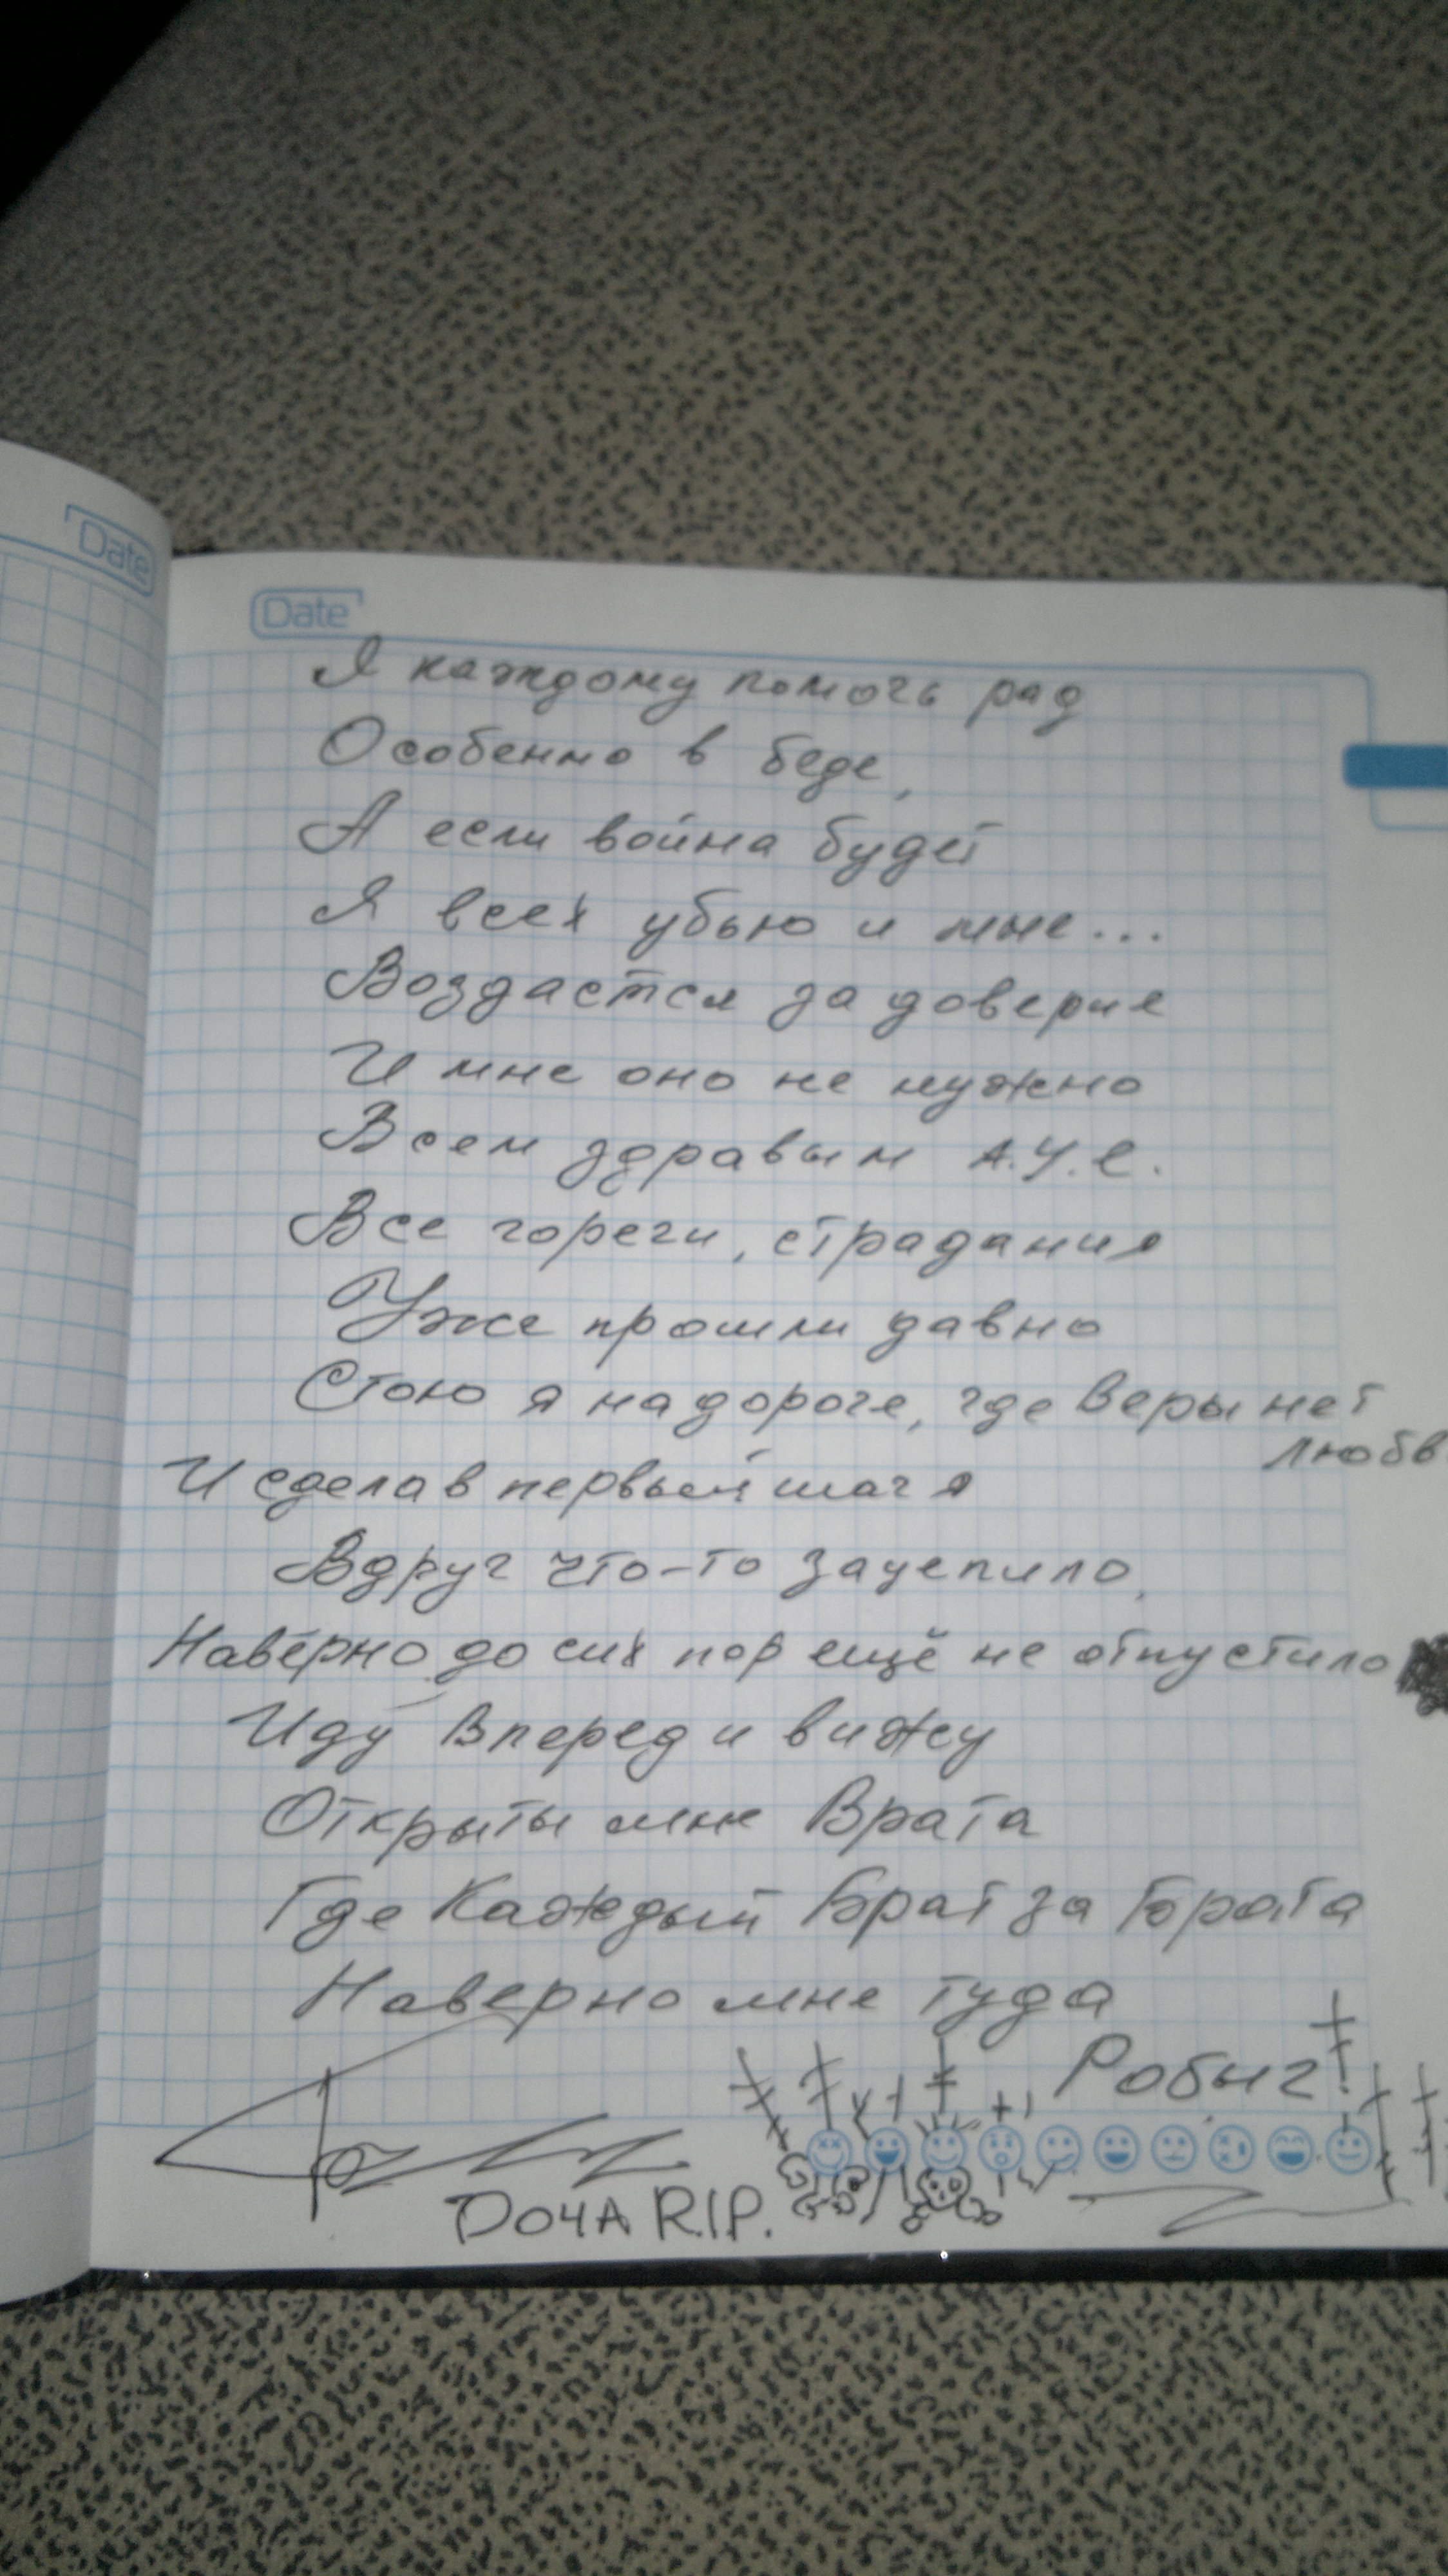 Date
Date
Я каждому помочь рад
Особенно в беде,
А если война будет
Я всех убью и мне...
Воздастся за доверие
И мне оно не нужно
Всем здравым А.У.Е.
Все горечи, страдания
Уже прошли давно
Стою я на дороге, где Веры нет
любв
И сделав первый шаг я
Вдруг что-то зацепило,
Наверно до сих пор ещё не отпустило
Иду Вперед и вижу
Открыты мне Врата
Где Каждый Брат за Брата
Наверно мне туда
Робыг!
ДОЧА R.I.P.